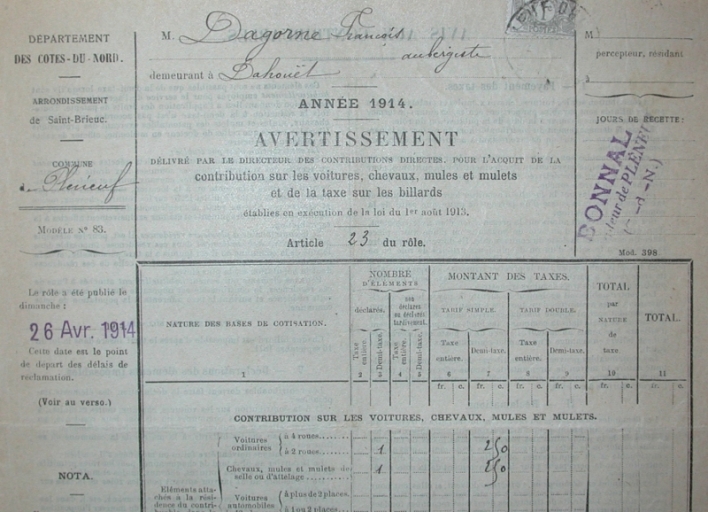 DÉPARTEMENT
DES COTES-DU-NORD.
ARRONDISSEMENT
de Saint-Brieuc.
COMMUNE
de Pléneuf
MODÈLE N° 83.
Le rôle a été publié le
dimanche :
26 Avr. 1914
Cette date est le point
de départ des délais de
réclamation.
(Voir au verso.)
NOTA.
M. Dagorne François
aubergiste
demeurant à Dahouët
ANNÉE 1914.
AVERTISSEMENT
DÉLIVRÉ PAR LE DIRECTEUR DES CONTRIBUTIONS DIRECTES, POUR L'ACQUIT DE LA
contribution sur les voitures, chevaux, mules et mulets
et de la taxe sur les billards
établies en exécution de la loi du 1er août 1913.
Article 23 du rôle.
M
percepteur, résidant
à
JOURS DE RECETTE:
BONNAL
Mod. 398
NATURE DES BASES DE COTISATION.
1
NOMBRE
D'ÉLÉMENTS
déclarés.
non
déclarés
ou déclarés
tardivement.
Taxe entière.
Demi-taxe.
Taxe entière.
Demi-taxe.
2 3 4 5
MONTANT DES TAXES.
TARIF SIMPLE. TARIF DOUBLE.
Taxe entière. Demi-taxe. Taxe entière. Demi-taxe.
6 7 8 9
TOTAL
par
NATURE
de
taxe.
10
TOTAL.
11
fr. c. fr. c. fr. c. fr. c. fr. c. fr. c.
CONTRIBUTION SUR LES VOITURES, CHEVAUX, MULES ET MULETS.
Voitures ordinaires
à 4 roues
à 2 roues 1 2 50
Chevaux, mules et mulets de
selle ou d'attelage 1 2 50
Éléments atta-
chés à la rési-
dence du contri-
Voitures automobiles
à plus de 2 places.
à 1 ou 2 places